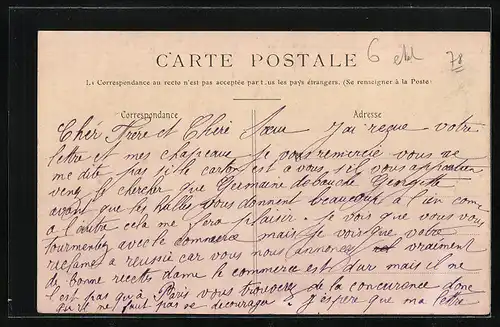 6 78
CARTE POSTALE
La Correspondance au recto n'est pas acceptée par tous les pays étrangers. (Se renseigner à la Poste)
Correspondance Adresse
Chér Frère et Chère Sœur J'ai reçue votre
lettre et mes chapeaux je vous remercie vous ne
me dite pas si le carton est a vous s'il vous appartien
venez le chercher que Germaine débouche Georgette
avant que les halles vous donnent beaucoup à l'un come
a l'autre cela me fera plaisir. Je vois que vous vous
tourmentez avec le commerce mais je vois que votre
reclame a reussie car vous nous annoncez vraiment
de bonne recette dame le commerce est dur mais il ne
l'est pas qu'à Paris vous trouverez de la concurence donc
qu'il ne faut pas se decourager. J'espère que ma lettre